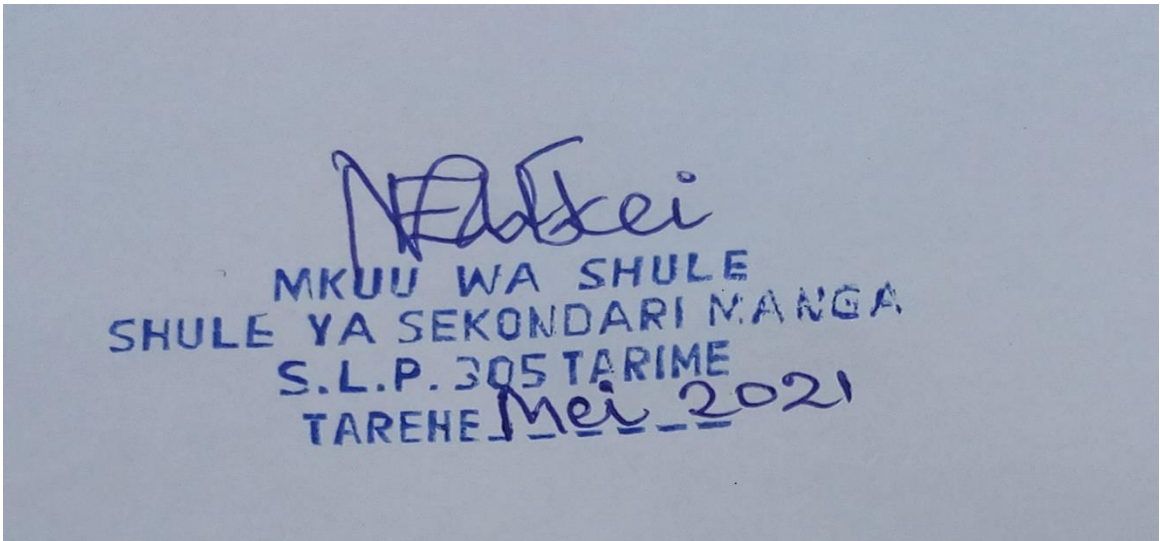 MKUU WA SHULE
SHULE YA SEKONDARI MANGA
S.L.P. 305 TARIME
TAREHE Mei 2021